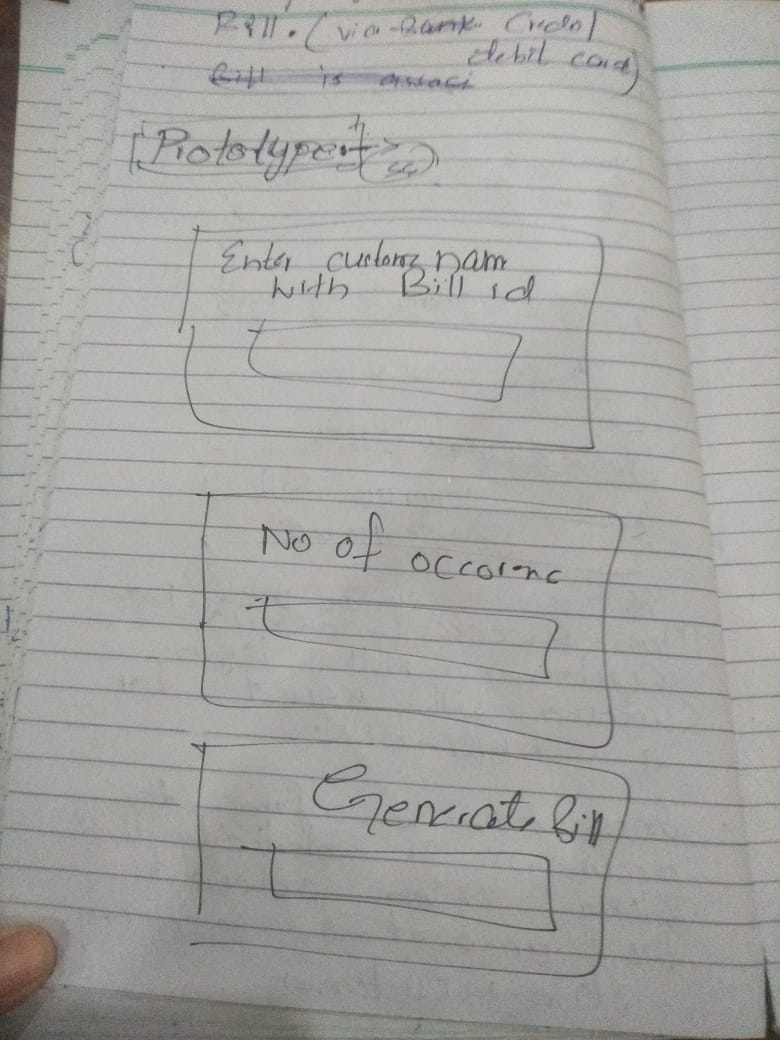 Bill. (via Bank Credit/
debit card)
Bill is associ
Prototype:
Enter custome nam
with Bill id
No of occorenc
Generate Bill